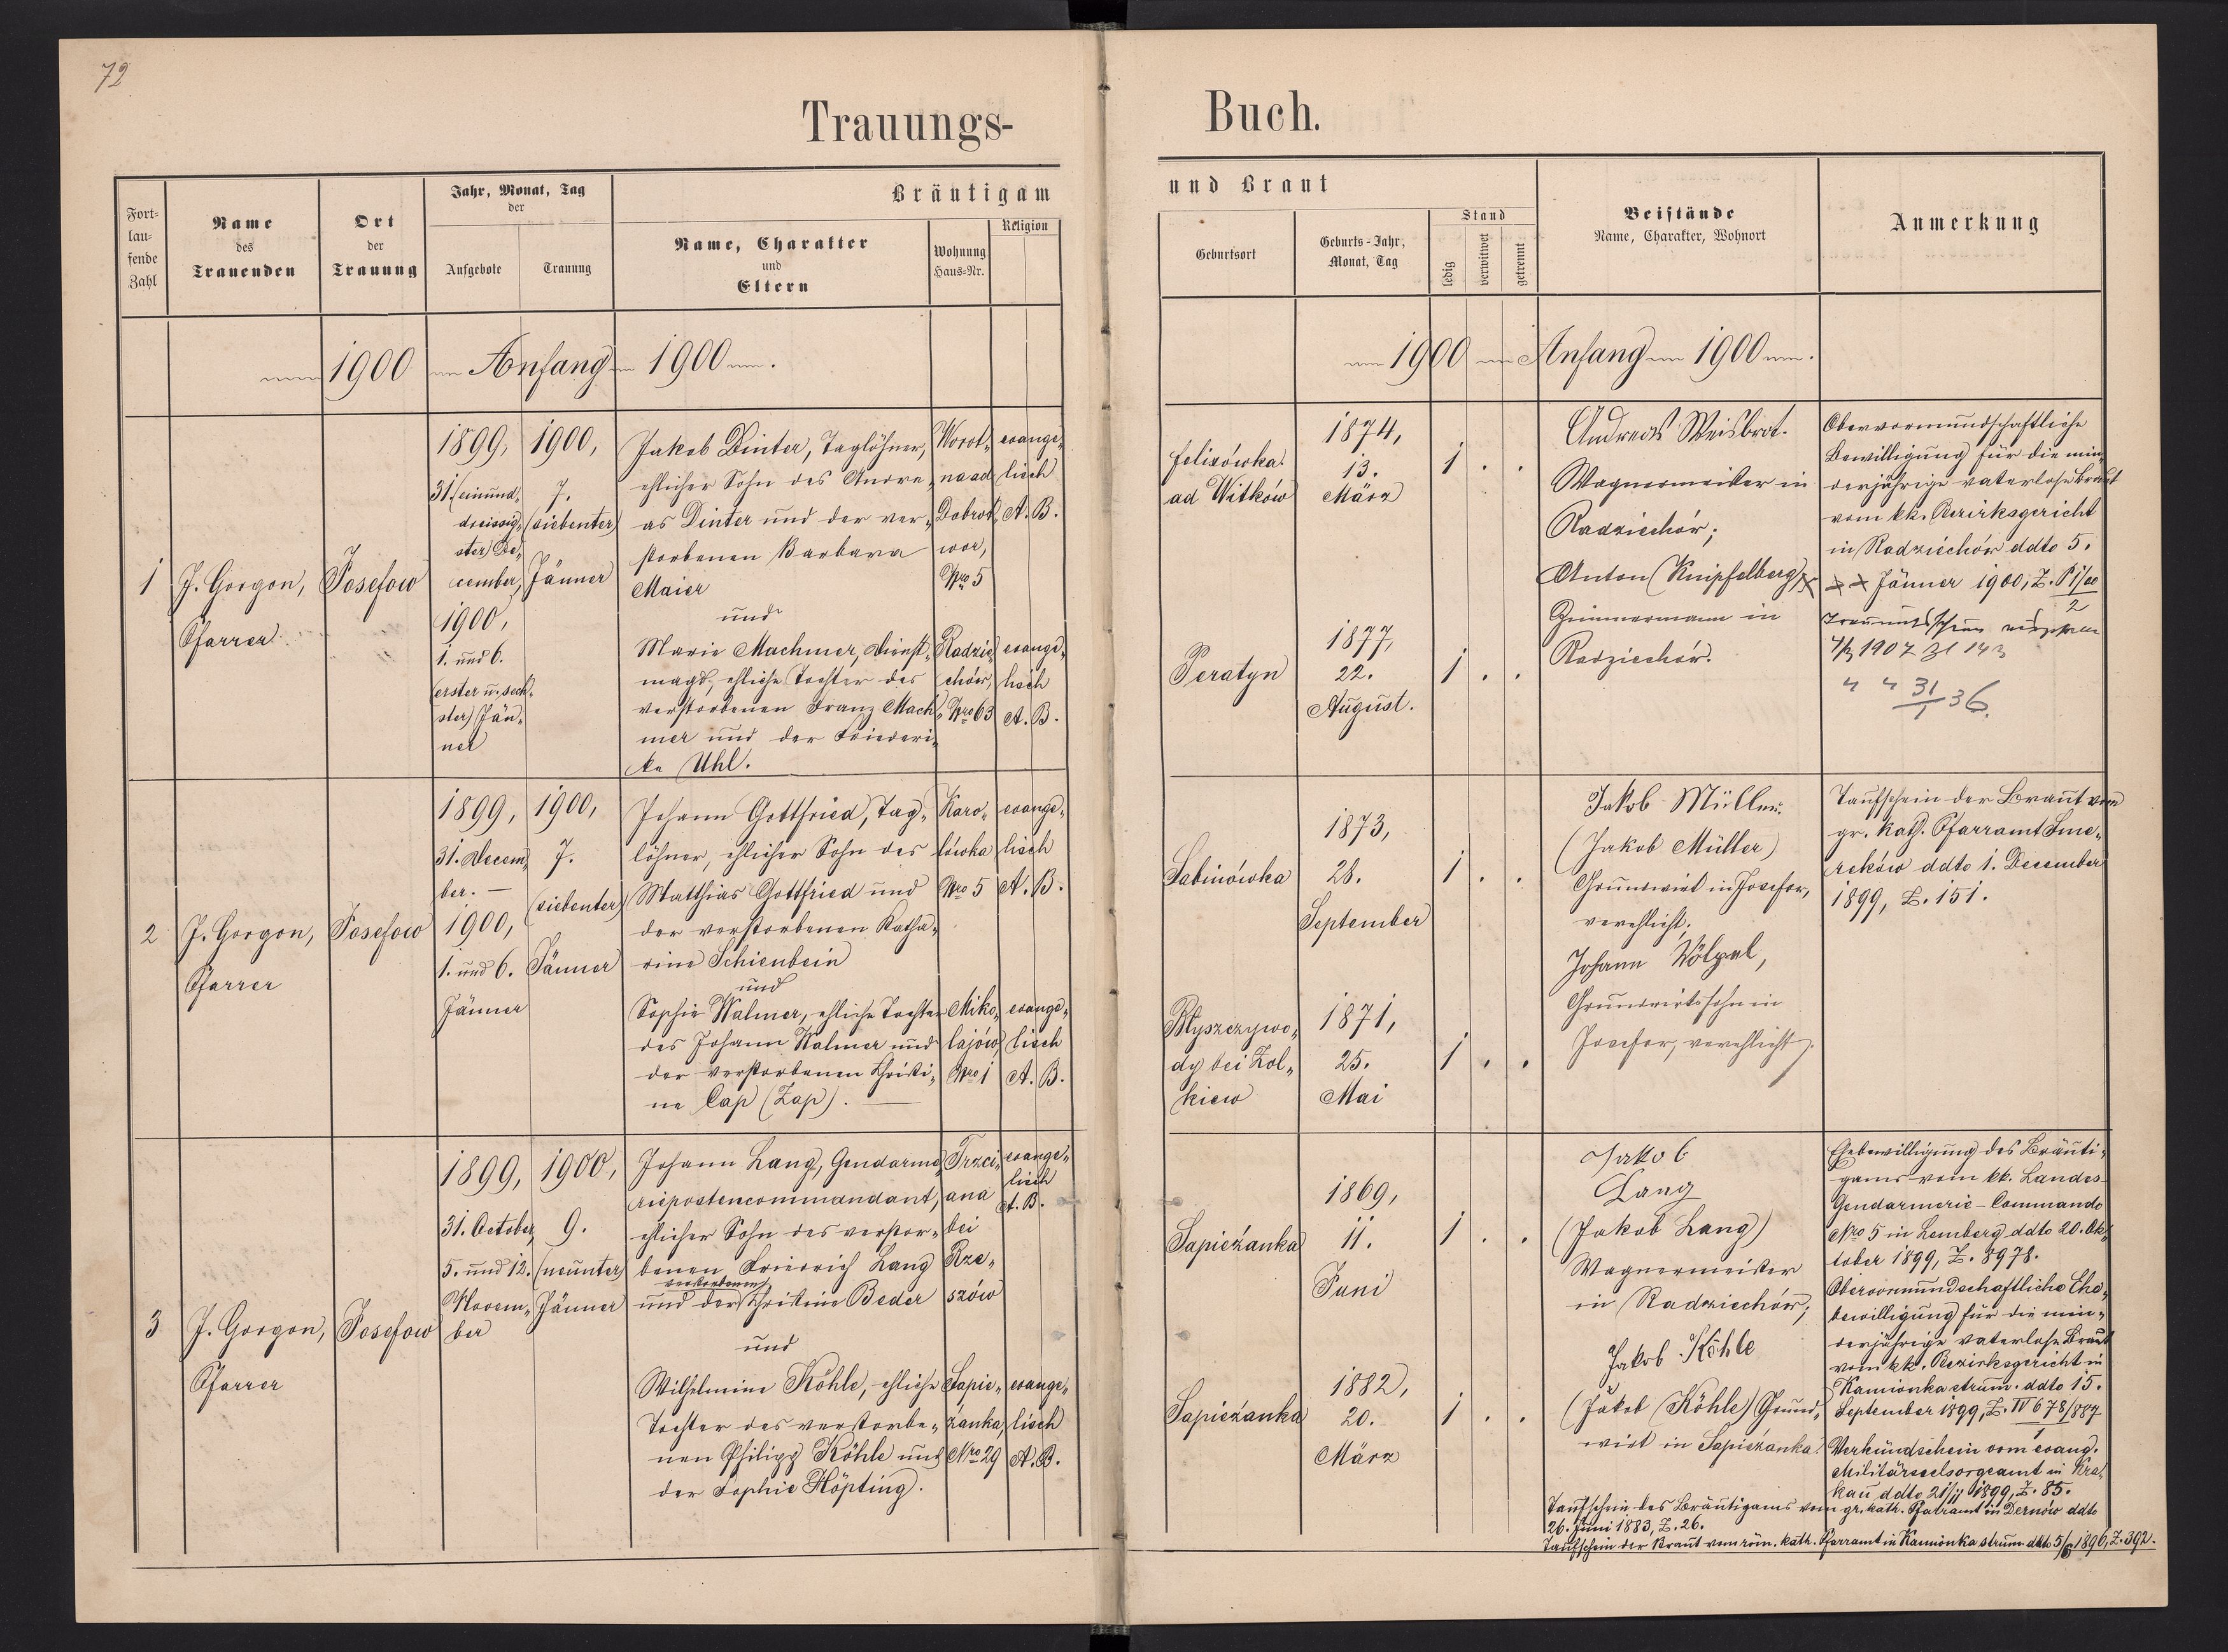 72
Trauungs-
Buch.
Fort-
lau-
fende
Zahl
Name
des
Trauenden
Ort
der
Trauung
Jahr, Monat, Tag
der
Aufgebote
Trauung
Bräutigam
Name, Charakter
und
Eltern
Wohnung
Haus-Nr.
Religion
1900 Anfang 1900
1
J. Gorgon,
Pfarrer
Josefow
1899,
31. (einund-
dreissig-
ster) De-
cember,
1900,
1. und 6.
(erster u. sech-
ster) Jän-
ner
1900,
7.
(siebenter)
Jänner
Jakob Dinter, Taglöhner,
ehlicher Sohn des Andre-
as Dinter und der ver-
storbenen Barbara
Maier
und
Marie Machmer, Dienst-
magd, ehliche Tochter des
verstorbenen Franz Mach-
mer und der Friederi-
ka Uhl.
Worot-
na ad
Dobrot-
wor,
Nro 5
Radzie-
chów,
Nro 63
evange-
lisch
A. B.
evange-
lisch
A. B.
2
J. Gorgon,
Pfarrer
Josefow
1899,
31. Decem-
ber. —
1900,
1. und 6.
Jänner
1900,
7.
(siebenter)
Jänner
Johann Gottfried, Tag-
löhner, ehlicher Sohn des
Matthias Gottfried und
der verstorbenen Katha-
rine Schienbein
und
Sophie Walmer, ehliche Tochter
des Johann Walmer und
der verstorbenen Christi-
ne Cap (Zap). —
Karo-
lówka
Nro 5
Miko-
lajów,
Nro 1
evange-
lisch
A. B.
evange-
lisch
A. B.
3
J. Gorgon,
Pfarrer
Josefow
1899,
31. October,
5. und 12.
Novem-
ber
1900,
9.
(neunter)
Jänner
Johann Lang, Gendarme-
riepostencommandant,
ehlicher Sohn des verstor-
benen Friedrich Lang
verstorbenen
und der Christine Beder
und
Wilhelmine Köhle, ehliche
Tochter des verstorbe-
nen Philipp Köhle und
der Sophie Höpting.
Trzci-
ana
bei
Rze-
szów
Sapie-
żanka,
Nro 29
evange-
lisch
A. B.
evange-
lisch
A. B.
und Braut
Geburtsort
Geburts-Jahr,
Monat, Tag
Stand
ledig
verwitwet
getrennt
Beistände
Name, Charakter, Wohnort
Anmerkung
1900 Anfang 1900
felixówka
ad Witków
1874,
13.
März
1 . .
Peratyn
1877,
22.
August.
1 . .
Andreas Weisbrot.
Wagnermeister in
Radziechów;
Anton Knipfelberg,
Zimmermann in
Radziechów.
Obervormundschaftliche
Bewilligung für die min-
derjährige vaterlose Braut
vom kk. Bezirksgericht
in Radziechów ddto 5.
Jänner 1900, Z. P 1/00
2
1907
31 36.
1
Sabinówka
1873,
28.
September
1 . .
Błyszczywo-
dy bei Żol-
kiew
1871,
25.
Mai
1 . .
Jakob Müller.
(Jakob Müller)
Grundwirt in Josefow,
verehlicht;
Johann Wölpel,
Grundwirtssohn in
Josefow, verehlicht.
Taufschein der Braut vom
gr. kath. Pfarramt Sme-
reków ddto 1. December
1899, Z. 151.
Sapieżanka
1869,
11.
Juni
1 . .
Sapieżanka
1882,
20.
März
1 . .
Jakob
Lang
(Jakob Lang)
Wagnermeister
in Radziechów;
Jakob Köhle
(Jakob Köhle) Grund-
wirt in Sapieżanka.
Ehebewilligung des Bräuti-
gams vom kk. Landes-
Gendarmerie-Commando
Nro 5 in Lemberg ddto 20. Ok-
tober 1899, Z. 8978.
Obervormundschaftliche Ehe-
bewilligung für die min-
derjährige vaterlose Braut
vom kk. Bezirksgericht in
Kamionka strum. ddto 15.
September 1899, Z. IV 678/887
1
Verkündschein vom evang.
Militärseelsorgeamt in Kra-
kau ddto 21/11 1899, Z. 85.
Taufschein des Bräutigams vom gr. kath. Pfarramt in Dernów ddto
26. Juni 1883, Z. 26.
Taufschein der Braut vom röm. kath. Pfarramt in Kamionka strum. ddto 5/6 1896, Z. 392.